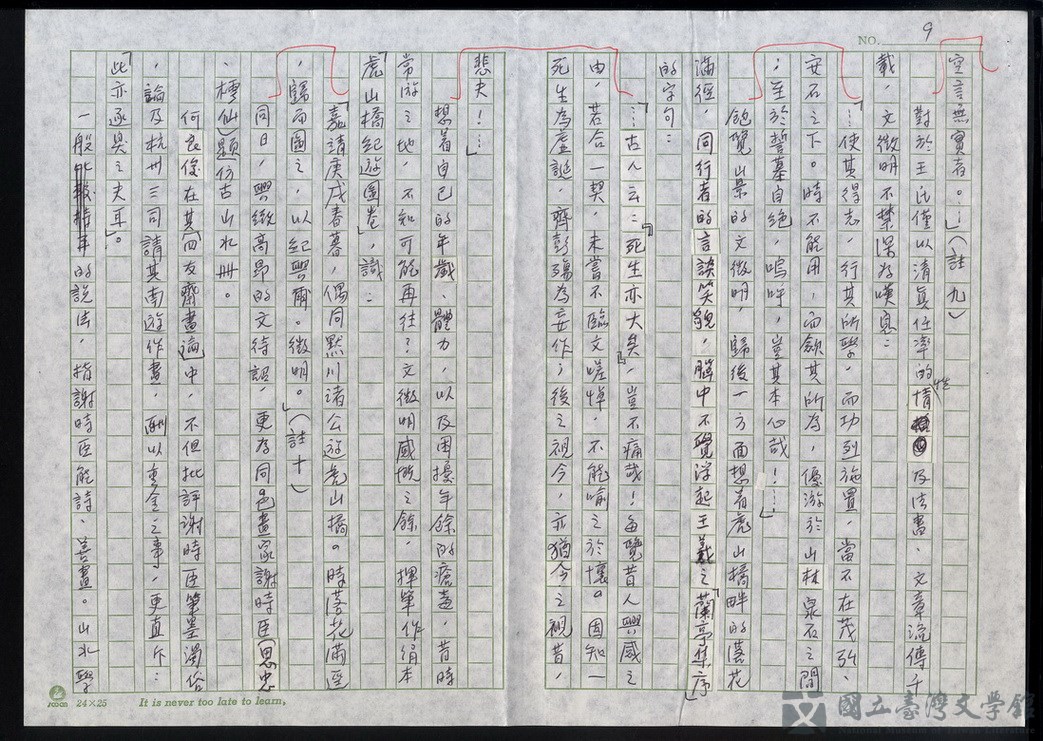 NO. 9
空言無實者。…」(註九)
對於王氏僅以清真任率的性情及法書、文章流傳千
載,文徵明不禁深為嘆息:
「…使其得志,行其所學,而功烈施置,當不在茂弘、
安石之下。時不能用,而斂其所為,優游於山林泉石之間
;至於誓墓自絕,嗚呼,豈其本心哉!…」
飽覽山景的文徵明,歸後一方面想着虎山橋畔的落花
滿徑,同行者的言談笑貌,腦中不覺浮起王羲之「蘭亭集序」
的字句:
「…古人云:『死生亦大矣』,豈不痛哉!每覽昔人興感之
由,若合一契,未嘗不臨文嗟悼,不能喻之於懷。固知一
死生為虛誕,齊彭殤為妄作;後之視今,亦猶今之視昔,
悲夫!…」
想着自己的年歲、體力,以及困擾年餘的瘡毒,昔時
常游之地,不知可能再往?文徵明感慨之餘,揮筆作絹本
「虎山橋紀遊圖卷」,識:
「嘉靖庚戌春暮,偶同默川諸公遊虎山橋。時落花滿徑
,歸而圖之,以紀興爾。徵明。」(註十)
同日,興緻高昂的文待詔,更為同邑畫家謝時臣(思忠
、樗仙)題仿古山水冊。
何良俊在其「四友齋畫論」中,不但批評謝時臣筆墨濁俗
,論及杭州三司請其南遊作畫,酬以重金之事,更直斥:
「此亦逐臭之夫耳」。
一般的說法,指謝時臣能詩、善畫。山水學
24×25 It is never too late to learn,
國立臺灣文學館
National Museum of Taiwan Literature